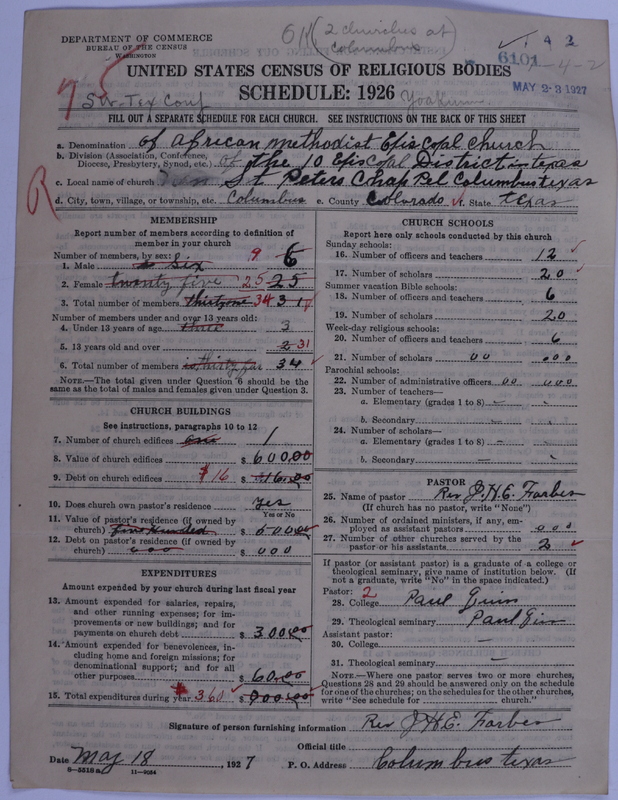 DEPARTMENT OF COMMERCE
BUREAU OF THE CENSUS
WASHINGTON
(2 churches at
Columbus)
6101-4-2
MAY 23 1927
UNITED STATES CENSUS OF RELIGIOUS BODIES
SCHEDULE: 1926
75
Sw. Tex Conf
Yoakum
FILL OUT A SEPARATE SCHEDULE FOR EACH CHURCH. SEE INSTRUCTIONS ON THE BACK OF THIS SHEET
a. Denomination of african methodist Episcopal church
b. Division (Association, Conference,
Diocese, Presbytery, Synod, etc.) of the 10 Episcopal District in texas
c. Local name of church St Peters Chap Pel Columbus texas
R
d. City, town, village, or township, etc. Columbus e. County Colorado f. State texas
MEMBERSHIP
Report number of members according to definition of
member in your church
Number of members, by sex:
1. Male Six 9 6
2. Female twenty five 25 25
3. Total number of members thirty one 34 31
Number of members under and over 13 years old:
4. Under 13 years of age three 3
5. 13 years old and over 31
6. Total number of members 34
NOTE.—The total given under Question 6 should be the
same as the total of males and females given under Question 3.
CHURCH BUILDINGS
See instructions, paragraphs 10 to 12
7. Number of church edifices one 1
8. Value of church edifices $ 600.00
9. Debt on church edifices $16 $ 16.00
10. Does church own pastor's residence yes
Yes or No
11. Value of pastor's residence (if owned by
church) five Hundred $ 500.00
12. Debt on pastor's residence (if owned by
church) 000 $ 000
EXPENDITURES
Amount expended by your church during last fiscal year
13. Amount expended for salaries, repairs,
and other running expenses; for im-
provements or new buildings; and for
payments on church debt $ 300.00
14. Amount expended for benevolences, in-
cluding home and foreign missions; for
denominational support; and for all
other purposes $ 60.00
15. Total expenditures during year $360 $
CHURCH SCHOOLS
Report here only schools conducted by this church
Sunday schools:
16. Number of officers and teachers 12
17. Number of scholars 20
Summer vacation Bible schools:
18. Number of officers and teachers 6
19. Number of scholars 20
Week-day religious schools:
20. Number of officers and teachers 6
21. Number of scholars 00 000
Parochial schools:
22. Number of administrative officers 00 000
23. Number of teachers—
a. Elementary (grades 1 to 8)
b. Secondary
24. Number of scholars—
a. Elementary (grades 1 to 8)
b. Secondary
PASTOR
25. Name of pastor Rev J.H.E. Forbes
(If church has no pastor, write "None")
26. Number of ordained ministers, if any, em-
ployed as assistant pastors 000
27. Number of other churches served by the
pastor or his assistants 2
If pastor (or assistant pastor) is a graduate of a college or
theological seminary, give name of institution below. (If
not a graduate, write "No" in the space indicated.)
Pastor: 2
28. College Paul
29. Theological seminary Paul
Assistant pastor:
30. College —
31. Theological seminary —
NOTE.—Where one pastor serves two or more churches,
Questions 28 and 29 should be answered only on the schedule
for one of the churches; on the schedules for the other churches,
write "See schedule for church."
Signature of person furnishing information Rev J.H.E. Forbes
Official title
Date May 18, 1927 P. O. Address Columbus texas
8—5518a 11—9084